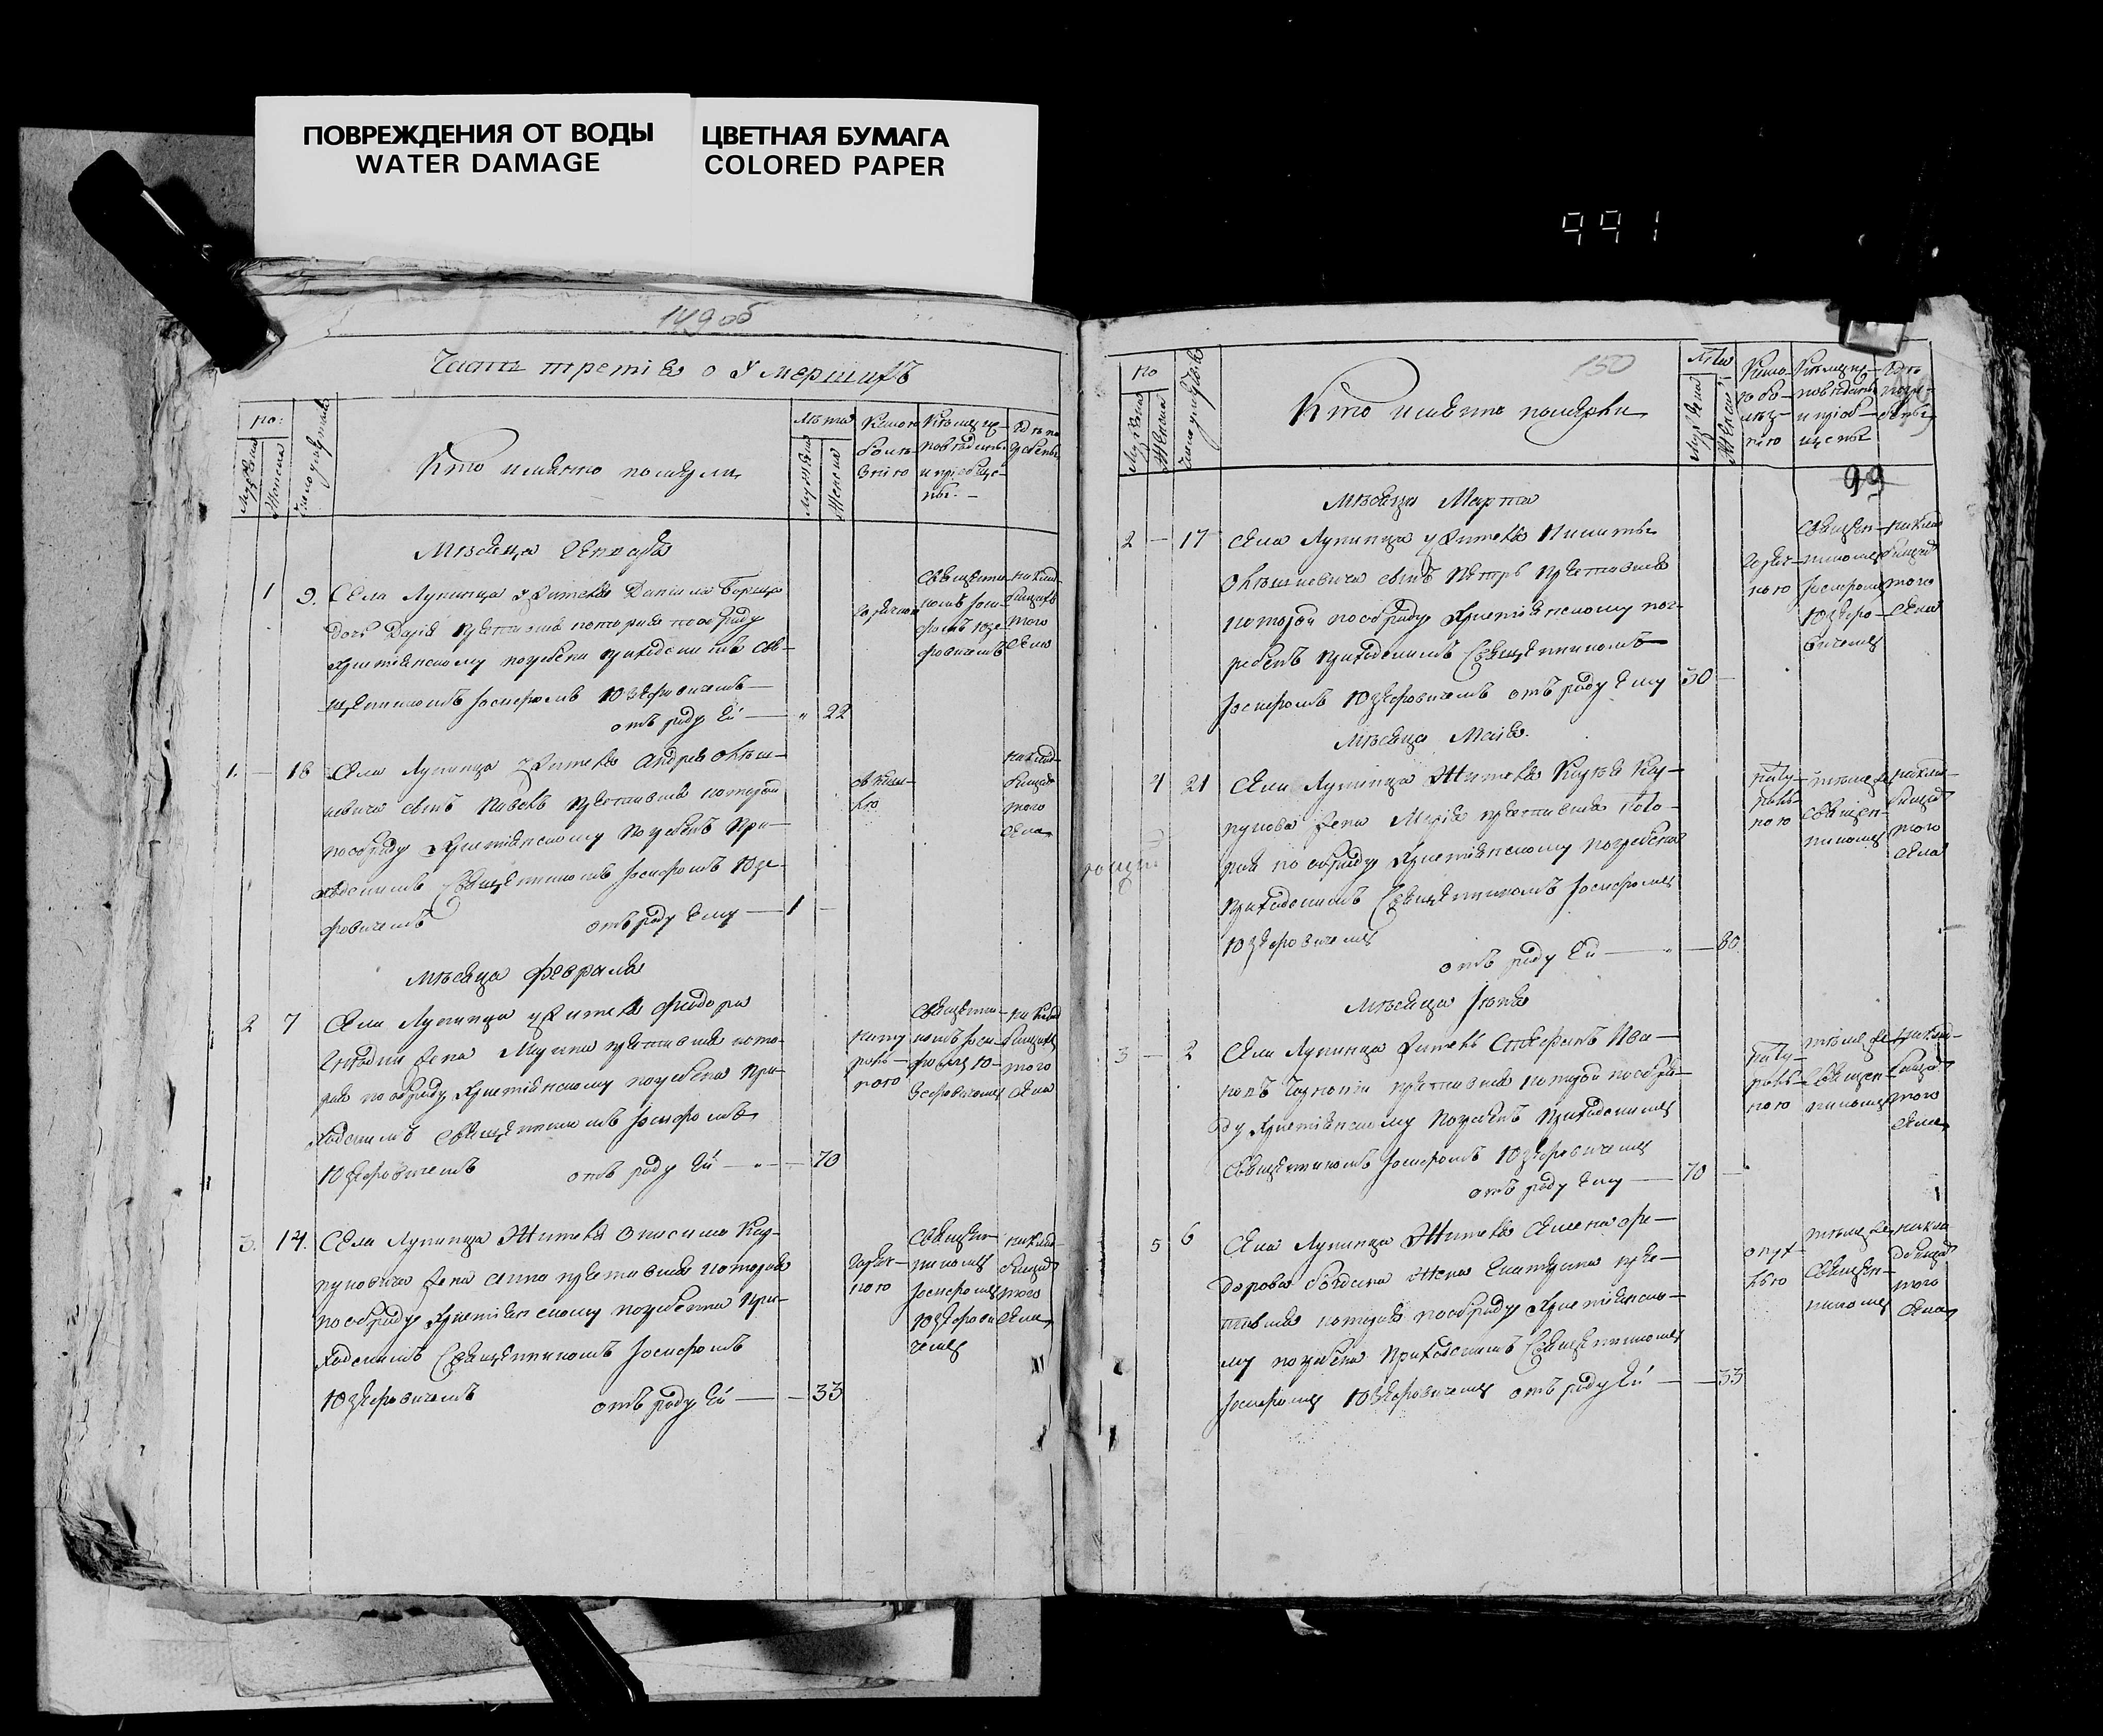 ПОВРЕЖДЕНИЯ ОТ ВОДЫ
WATER DAMAGE
ЦВЕТНАЯ БУМАГА
COLORED PAPER
991
149 об
Часть третія о Умершихъ
по:
Мужеска
Женска
Число умертвія
Кто именно померли
Лѣта
Мужеска
Женска
Какою
болѣ-
знію
Кѣмъ испо-
повѣданы
и пріобще-
ны.
Гдѣ по
гребены
Мѣсяца Генваря
1 9. Села Лупинца жителя Даніила
дочь Дарія преставись которая по обряду
христіянскому погребена приходскимъ свя-
щенникомъ Іосифомъ Юзефовичемъ
отъ роду ей — " 22
горячкою
Священни-
комъ Іоси-
фомъ Юзе-
фовичемъ
на клад-
бищѣ
того
села
1. — 16 Села Лупинца жителя Андрея
сынъ Павелъ преставися которой
по обряду христіянскому погребенъ при-
ходскимъ Священникомъ Іосифомъ Юзе-
фовичемъ отъ роду ему — 1 —
на клад-
бищѣ
того
села
Мѣсяца Февраля
2 7 Села Лупинца жителя Феодора
жена преставися кото-
рая по обряду христіянскому погребена при-
ходскимъ священникомъ Іосифомъ
Юзефовичемъ отъ роду ей — " — 70
нату
раль-
ною
Священни-
комъ Іоси-
фомъ Ю-
зефовичемъ
на клад
бищѣ
того
села
3. 14. Села Лупинца Жителя Онисима Кар-
пуковича жена Анна преставися которая
по обряду христіянскому погребенна при-
ходскимъ Священникомъ Іосифомъ
Юзефовичемъ отъ роду ей — — 33
горяч-
кою
Священ-
никомъ
Іосифомъ
Юзефови
чемъ
на клад
бищѣ
того
села
150
по
Мужеска
Женска
Число умертвія
Кто именно померли
Лѣта
Мужеска
Женска
Какою
болѣз-
нію
Кѣмъ испо-
вѣданы
и пріоб-
щены
Гдѣ
погре-
бены
99
Мѣсяца Марта
2 — 17 Села Лупинца жителя Никиты
сынъ Петръ преставися
которой по обряду христіянскому пог-
ребенъ приходскимъ Священникомъ
Іосифомъ Юзефовичемъ отъ роду ему 30 —
горяч-
кою
Священ-
никомъ
Іосифомъ
Юзефо-
вичемъ
на клад
бищѣ
того
села
Мѣсяца Маія.
4 21 Села Лупинца Жителя Карпа Кар-
пукова жена Марія преставися кото-
рая по обряду христіянскому погребена
приходскимъ Священникомъ Іосифомъ
Юзефовичемъ
отъ роду ей — " — 80.
нату-
раль-
ною
тѣмъ же
священ-
никомъ
на клад
бищѣ
того
села
Мѣсяца Іюня
3 — 2 Села Лупинца житель Стефанъ Ива-
новъ преставися которой по обря-
ду христіянскому погребенъ приходскимъ
Священникомъ Іосифомъ Юзефовичемъ
отъ роду ему — 70 —
нату-
раль-
ною
тѣмъ же
священ-
никомъ
на клад-
бищѣ
того
села
5 6 Села Лупинца Жителя Семена Фе-
дорова жена Екатерина пре-
ставися которая по обряду христіянско-
му погребена приходскимъ Священникомъ
Іосифомъ Юзефовичемъ отъ роду ей — — 33
опух-
лью
тѣмъ же
священ-
никомъ
на клад
бищѣ
того
села